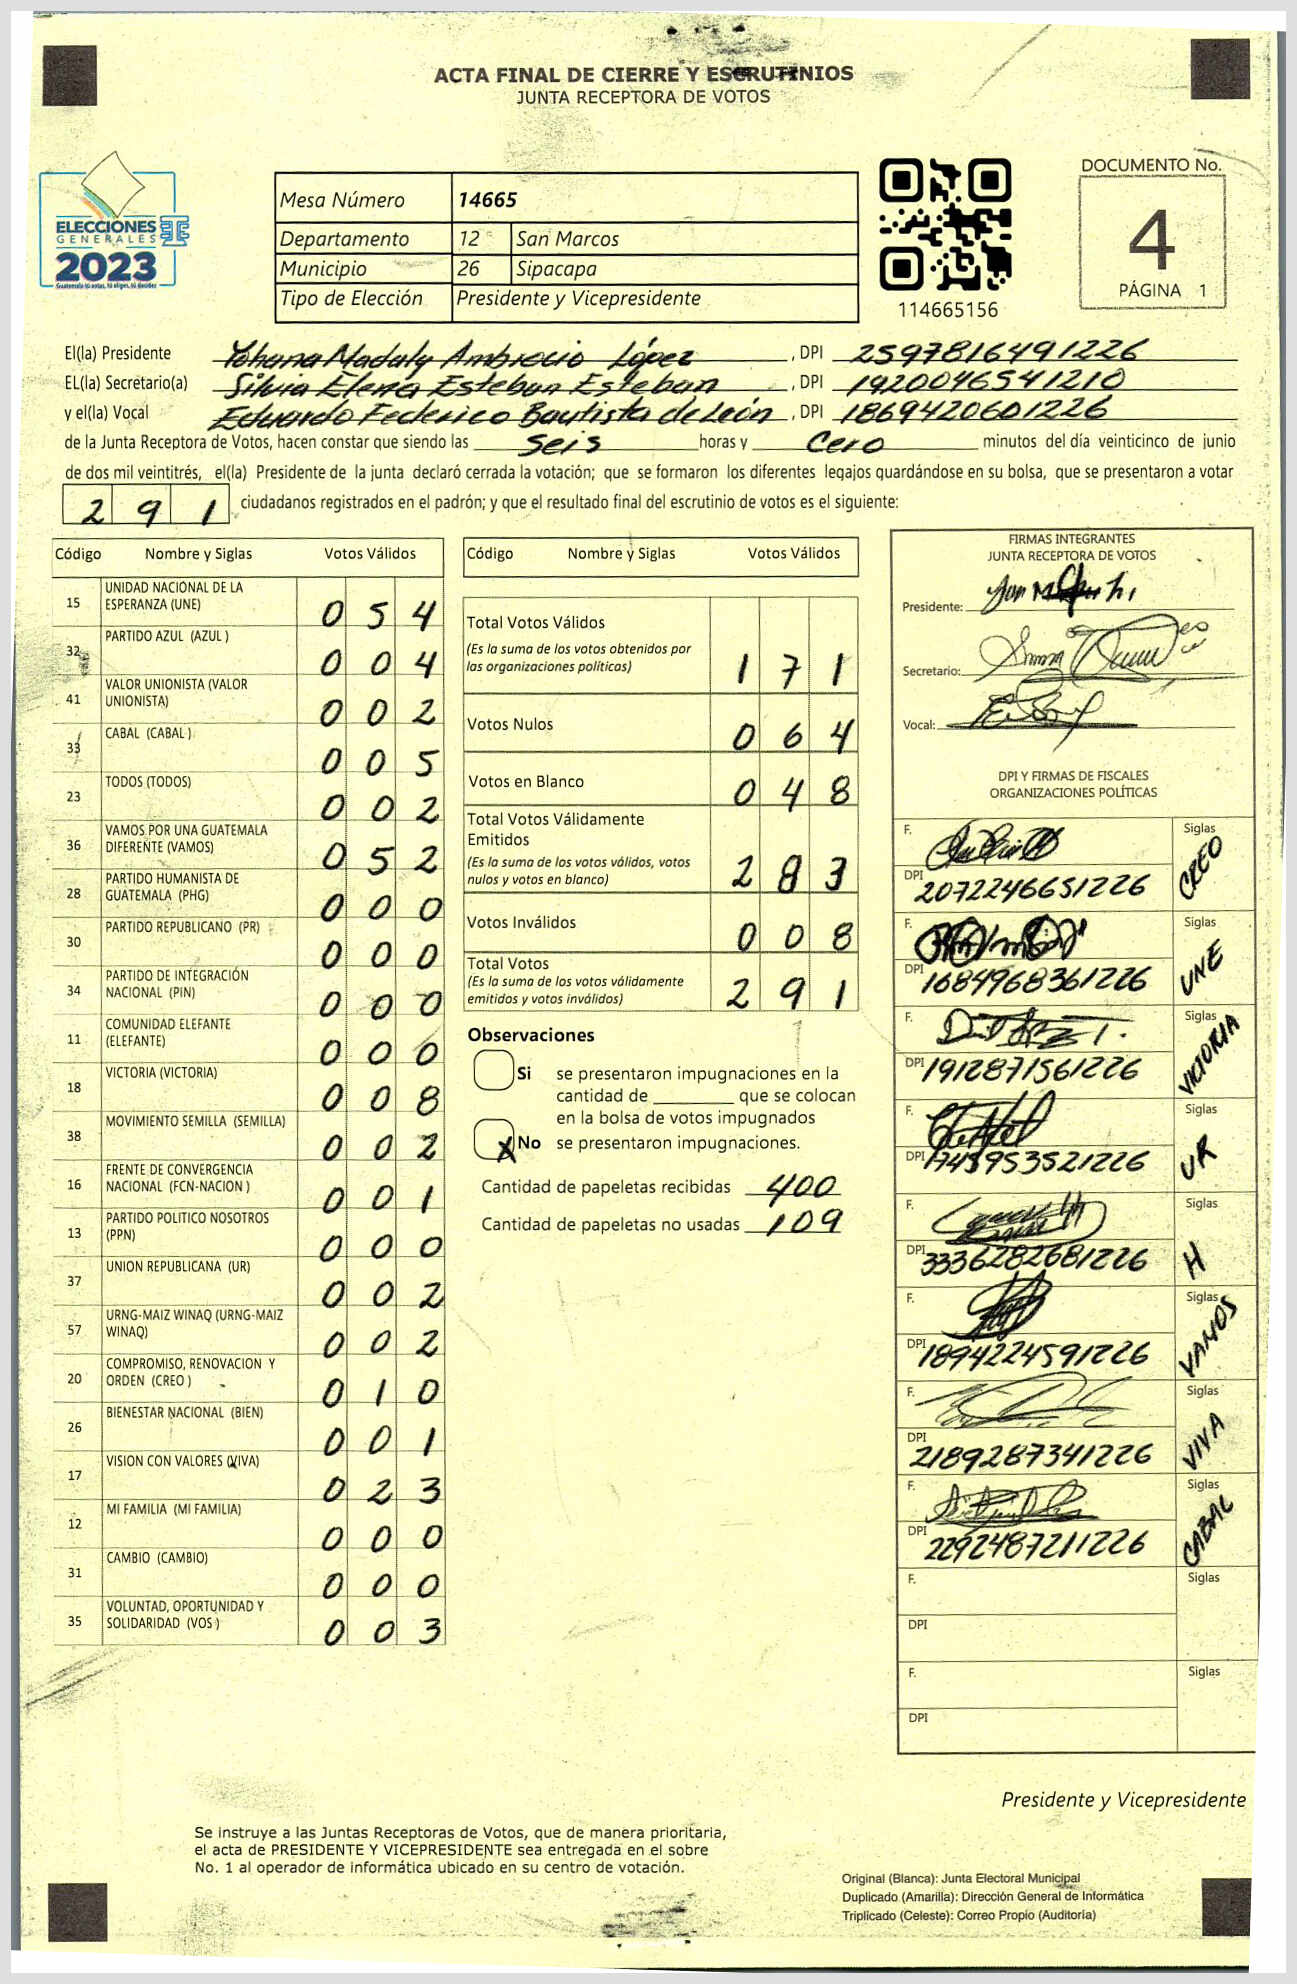 ACTA FINAL DE CIERRE Y ESCRUTINIOS
JUNTA RECEPTORA DE VOTOS
ELECCIONES
GENERALES
2023
Guatemala tú votas, tú eliges, tú decides
Mesa Número 14665
Departamento 12 San Marcos
Municipio 26 Sipacapa
Tipo de Elección Presidente y Vicepresidente
114665156
DOCUMENTO No.
4
PÁGINA 1
El(la) Presidente Yohana Madaly Ambrocio López, DPI 2597816491226
EL(la) Secretario(a) Silvia Elena Esteban Esteban, DPI 1920046541210
y el(la) Vocal Eduardo Federico Bautista de León, DPI 1869420601226
de la Junta Receptora de Votos, hacen constar que siendo las seis horas y cero minutos del día veinticinco de junio
de dos mil veintitrés, el(la) Presidente de la junta declaró cerrada la votación; que se formaron los diferentes legajos quardándose en su bolsa, que se presentaron a votar
291 ciudadanos registrados en el padrón; y que el resultado final del escrutinio de votos es el siguiente:
Código Nombre y Siglas Votos Válidos
15 UNIDAD NACIONAL DE LA ESPERANZA (UNE) 054
32 PARTIDO AZUL (AZUL ) 004
41 VALOR UNIONISTA (VALOR UNIONISTA) 002
33 CABAL (CABAL ) 005
23 TODOS (TODOS) 002
36 VAMOS POR UNA GUATEMALA DIFERENTE (VAMOS) 052
28 PARTIDO HUMANISTA DE GUATEMALA (PHG) 000
30 PARTIDO REPUBLICANO (PR) 000
34 PARTIDO DE INTEGRACIÓN NACIONAL (PIN) 000
11 COMUNIDAD ELEFANTE (ELEFANTE) 000
18 VICTORIA (VICTORIA) 008
38 MOVIMIENTO SEMILLA (SEMILLA) 002
16 FRENTE DE CONVERGENCIA NACIONAL (FCN-NACION ) 001
13 PARTIDO POLITICO NOSOTROS (PPN) 000
37 UNION REPUBLICANA (UR) 002
57 URNG-MAIZ WINAQ (URNG-MAIZ WINAQ) 002
20 COMPROMISO, RENOVACION Y ORDEN (CREO ) 010
26 BIENESTAR NACIONAL (BIEN) 001
17 VISION CON VALORES (VIVA) 023
12 MI FAMILIA (MI FAMILIA) 000
31 CAMBIO (CAMBIO) 000
35 VOLUNTAD, OPORTUNIDAD Y SOLIDARIDAD (VOS ) 003
Código Nombre y Siglas Votos Válidos
Total Votos Válidos
(Es la suma de los votos obtenidos por
las organizaciones políticas) 171
Votos Nulos 064
Votos en Blanco 048
Total Votos Válidamente
Emitidos
(Es la suma de los votos válidos, votos
nulos y votos en blanco) 283
Votos Inválidos 008
Total Votos
(Es la suma de los votos válidamente
emitidos y votos inválidos) 291
Observaciones
Si se presentaron impugnaciones en la
cantidad de ________ que se colocan
en la bolsa de votos impugnados
X No se presentaron impugnaciones.
Cantidad de papeletas recibidas 400
Cantidad de papeletas no usadas 109
FIRMAS INTEGRANTES
JUNTA RECEPTORA DE VOTOS
Presidente:
Secretario:
Vocal:
DPI Y FIRMAS DE FISCALES
ORGANIZACIONES POLÍTICAS
F. Siglas CREO
DPI 2072246651226
F. Siglas UNE
DPI 1684968361226
F. Siglas VICTORIA
DPI 1912871561226
F. Siglas UR
DPI 1745953521226
F. Siglas H
DPI 3336282681226
F. Siglas VAMOS
DPI 1894224591226
F. Siglas VIVA
DPI 2189287341226
F. Siglas CABAL
DPI 2292487211226
F. Siglas
DPI
F. Siglas
DPI
Presidente y Vicepresidente
Se instruye a las Juntas Receptoras de Votos, que de manera prioritaria,
el acta de PRESIDENTE Y VICEPRESIDENTE sea entregada en el sobre
No. 1 al operador de informática ubicado en su centro de votación.
Original (Blanca): Junta Electoral Municipal
Duplicado (Amarilla): Dirección General de Informática
Triplicado (Celeste): Correo Propio (Auditoría)